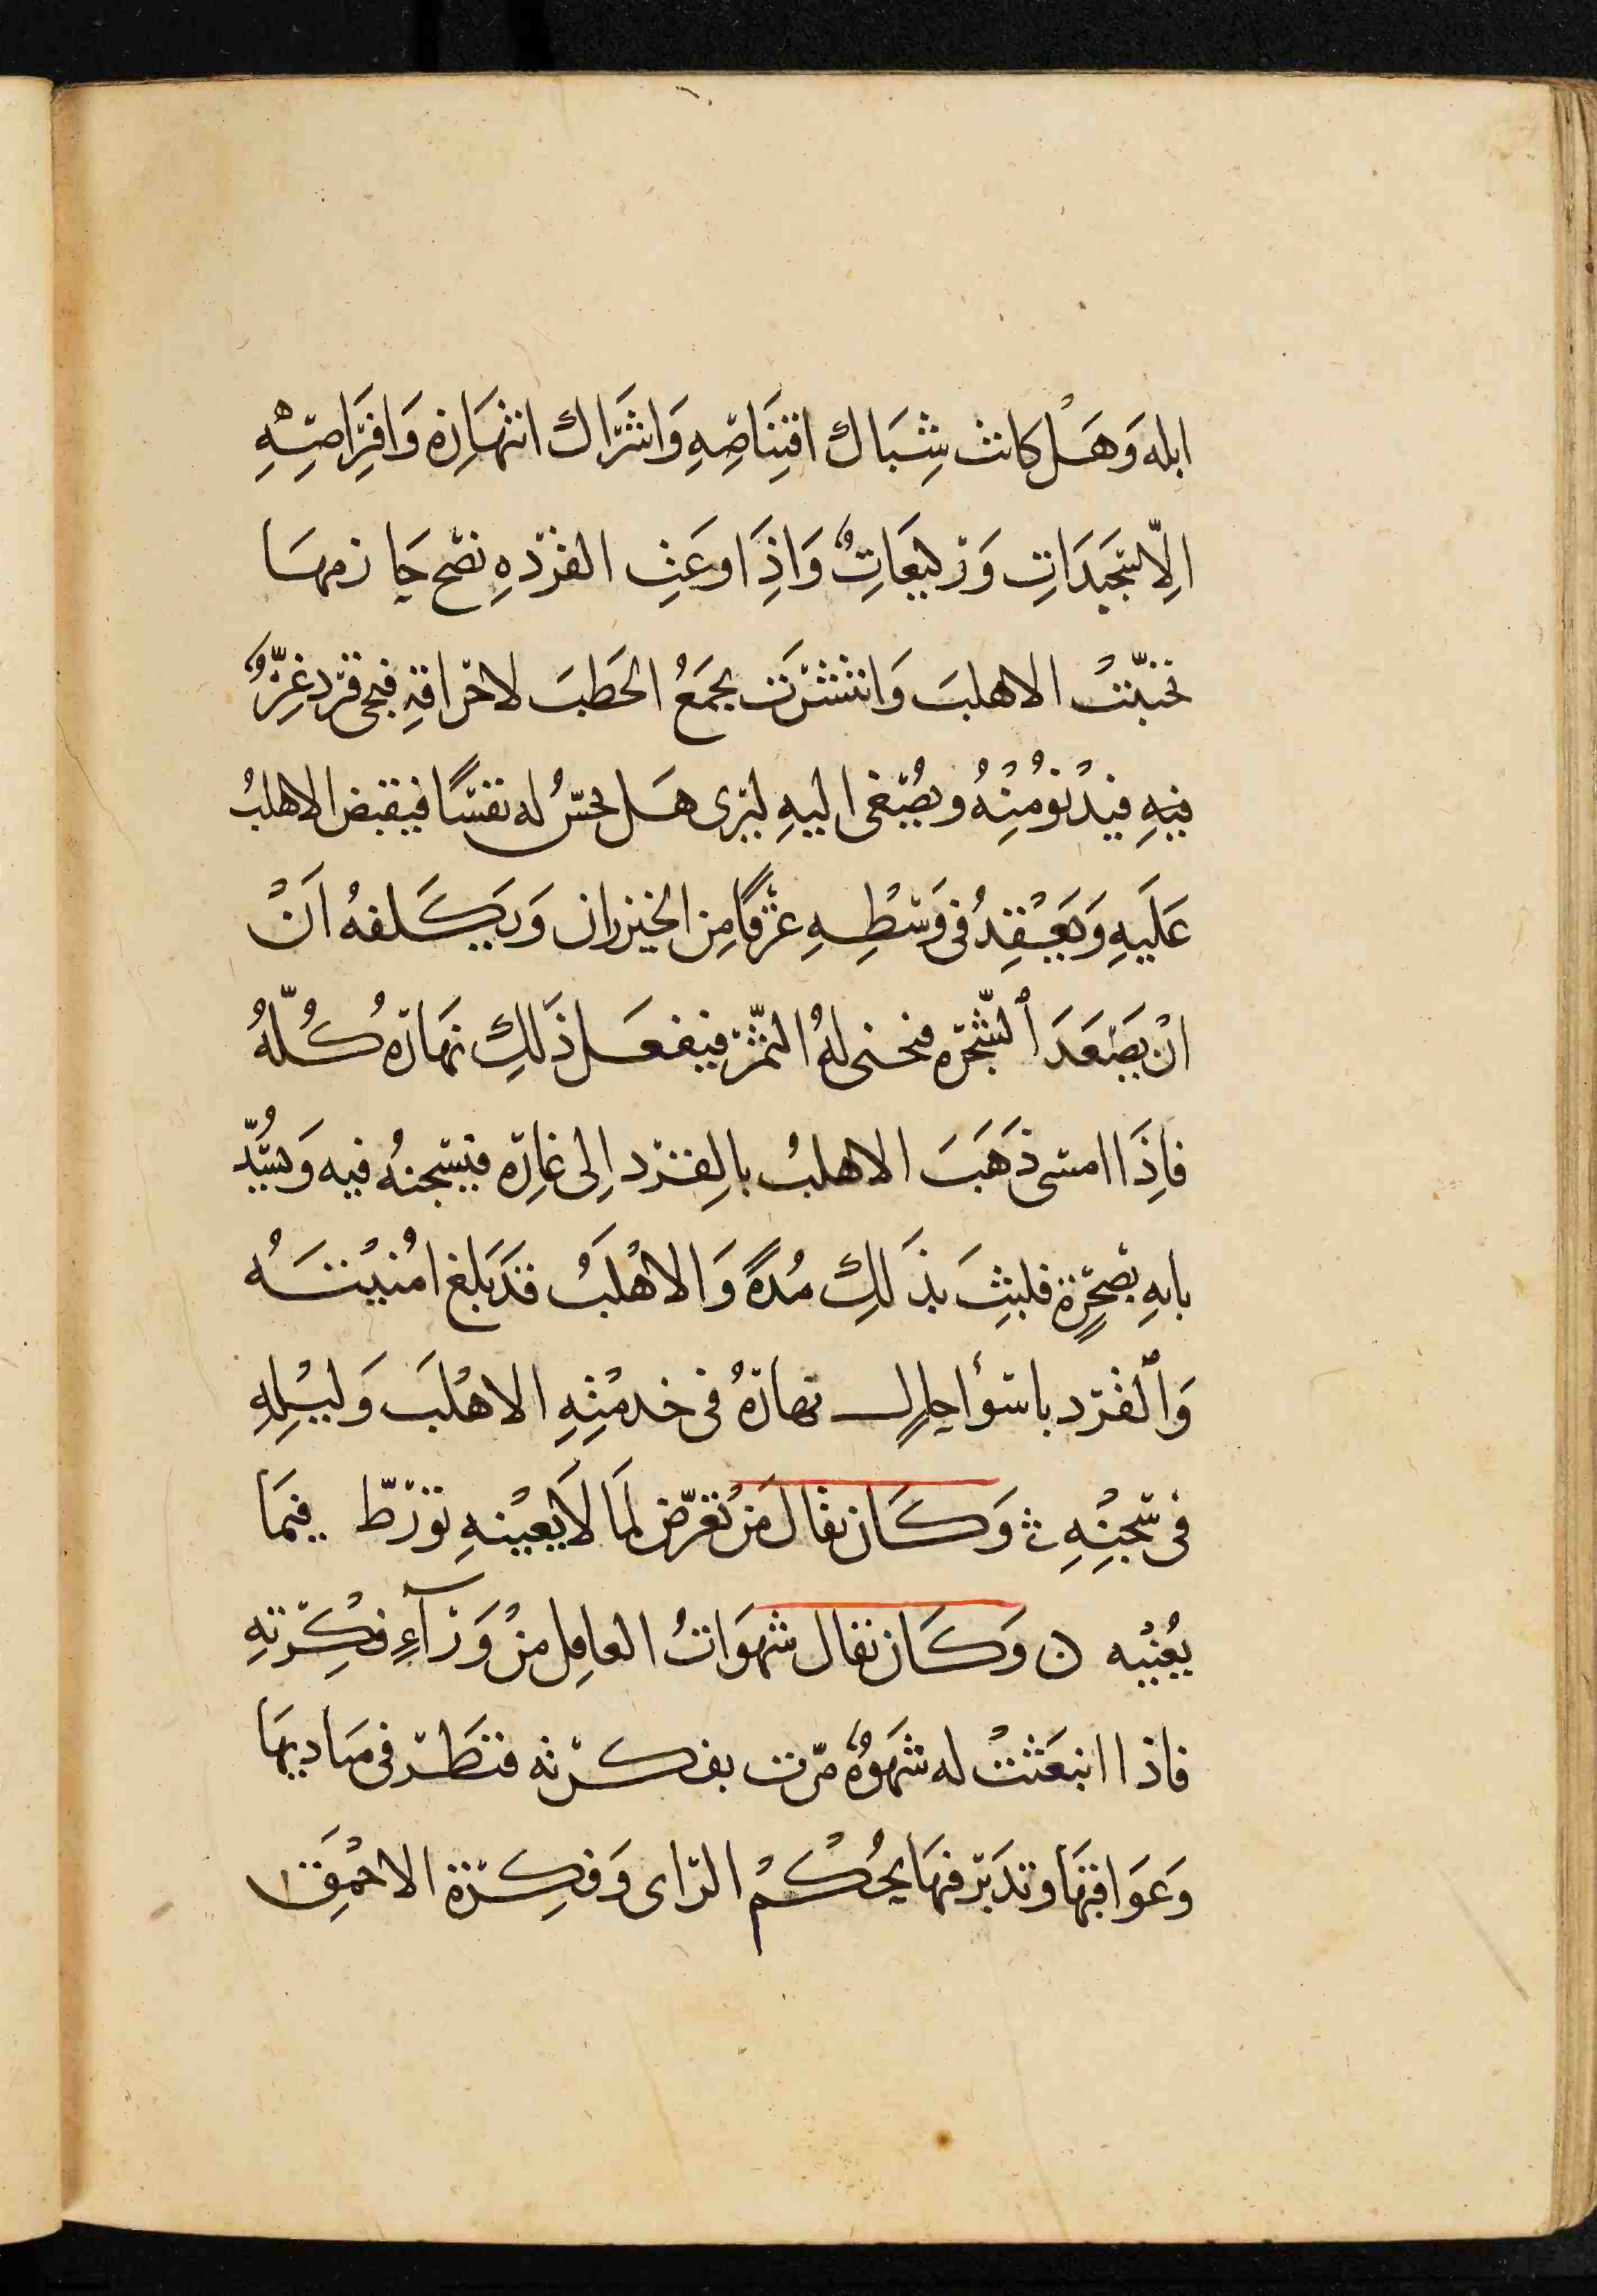 ابله وَهَلْ كانت شِبَاك اقتِنَاصِهِ وَاشرَاك انتهَازِه وَافتِرَاصِهِ
الِّا تَجيدَاتٍ وَرَكيعَاتٍ وَاِذَا اوعَتِ القردهِ نصح حَازمهَا
تخبّتْ الاهلبَ وَانتشرَت بجمَعُ الحَطبَ لاحراقهِ فيجى قرد غِرٌّ
فيهِ فيدْنوُ مِنْهُ ويصُغى اليهِ ليرى هَل يحسّ له نفسًا فيقبض الاهلبُ
عَلَيهِ وَيَعْقِدُ فى وَسْطِهِ عرقًا مِن الخيزران وَيكَلفهُ اَنْ
انْ يصَعَدَ الشّجره فيجنى لهُ الثمّر فيفعَل ذَلِكَ نهَاره كُلّهُ
فاِذَا امسى ذَهَبَ الاهلبُ بالِقرد اِلى غارِه فيسجنهُ فيه وَيسُدّ
بابهِ بصَخرةٍ فلبِثَ بذَلِكَ مُدةً وَالاهْلَبُ قدَ بَلغ امُنيْتَهُ
وَالْقرد باسَوأ حالٍ نهارهُ فى خدمْتِهِ الاهْلَبَ وَليْلِهِ
فى سّجنِهِ ؞ وَكَان يقال مَنْ تعَرّض لمَا لَا يعْينهِ تورّط فيمَا
يعُنيْه ن وَكَان يقال شهَوَاتُ العاقِل مِنْ وَرَآءِ فكِرْتهِ
فاذا انبعَثتْ له شهَوةٌ مرّت بفكرته فنظَر فى مبَاديهَا
وَعَوَاقبهَا وتدَبّر فيهَا بحُكْمْ الرّاى وَفكِرّة الاحْمِق